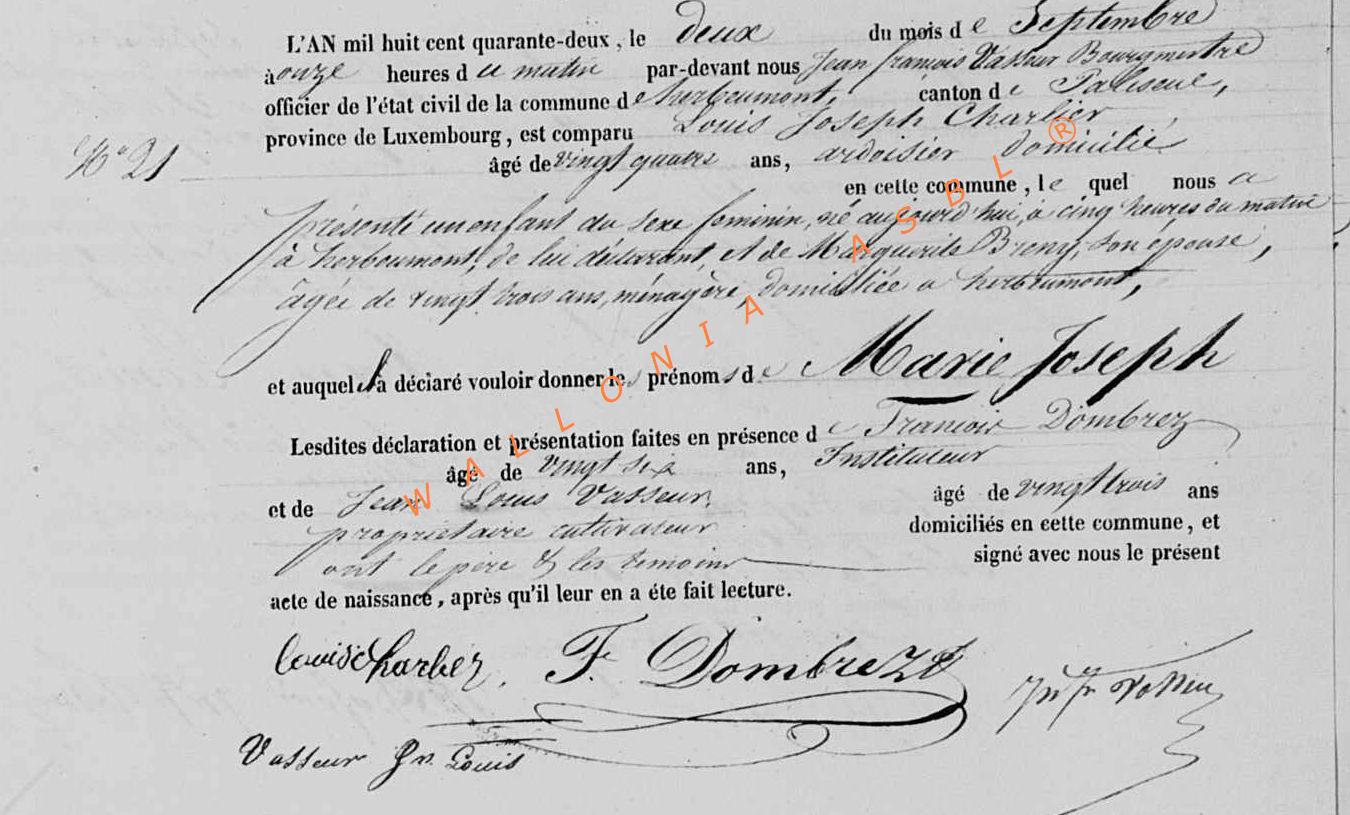 L'AN mil huit cent quarante-deux, le deux du mois de Septembre
à onze heures du matin par-devant nous Jean françois Vasseur Bourgmestre
officier de l'état civil de la commune de herbeumont, canton de Paliseul,
province de Luxembourg, est comparu Louis Joseph Charlier
N° 21
âgé de vingt quatre ans, ardoisier domicilié
en cette commune, le quel nous a
présenté un enfant du sexe feminin, né aujourd'hui, à cinq heures du matin
à herbeumont, de lui déclarant, et de Marguerite Breny, son épouse,
âgée de vingt trois ans, ménagère, domiciliée a herbeumont,
et auquel il a déclaré vouloir donner les prénoms de Marie Joseph
Lesdites déclaration et présentation faites en présence de Francois Dombrez
âgé de vingt six ans, Instituteur
et de Jean Louis Vasseur, âgé de vingt trois ans
propriétaire cultivateur domiciliés en cette commune, et
ont le père & les témoins signé avec nous le présent
acte de naissance, après qu'il leur en a éte fait lecture.
Louis Charlier, F. Dombrez
Vasseur Jn Louis
WALLONIA ASBL ®